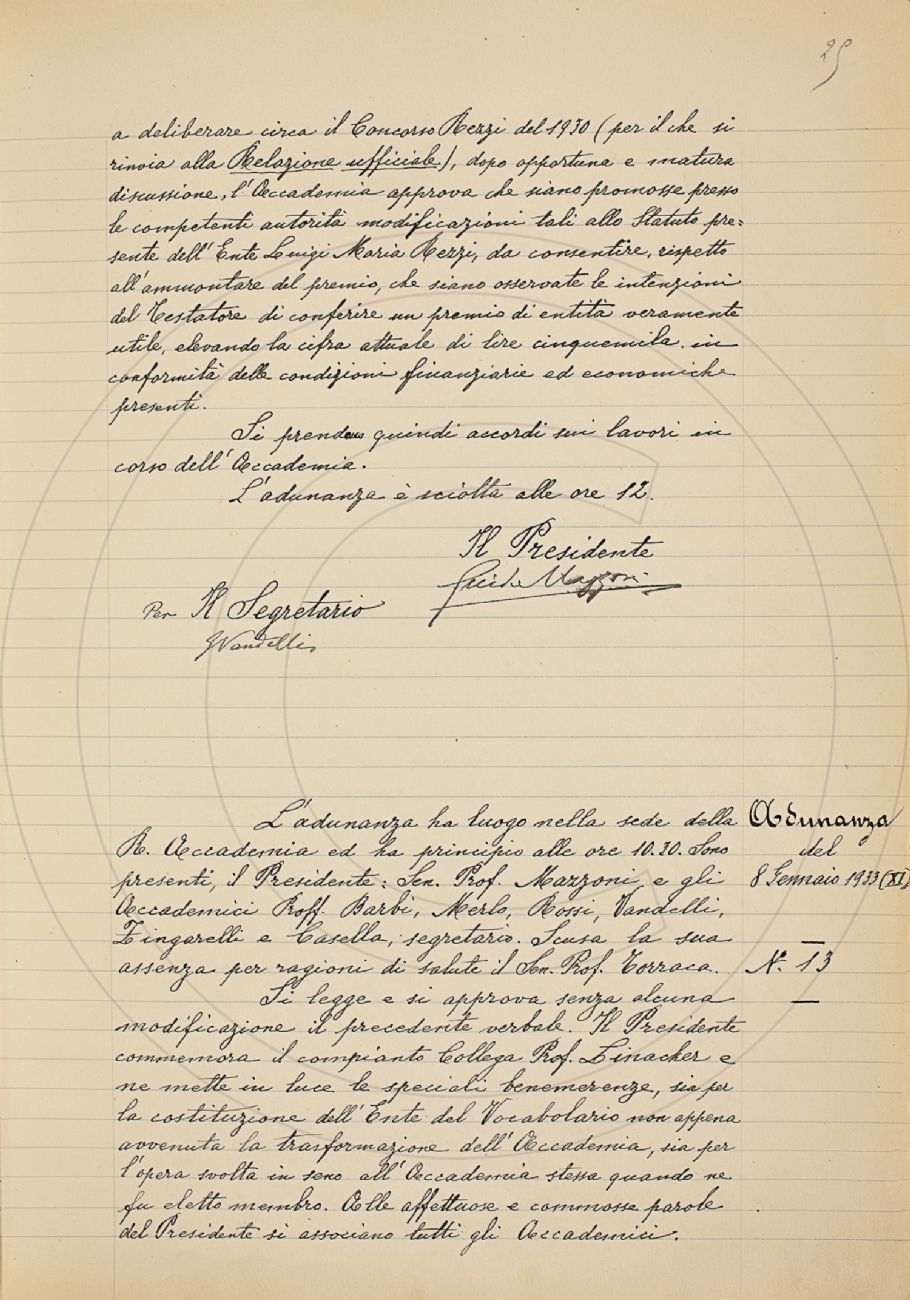 29
a deliberare circa il Concorso Rezzi del 1930 (per il che si
rinvia alla Relazione ufficiale), dopo opportuna e matura
discussione, l'Accademia approva che siano promosse presso
le competenti autorità modificazioni tali allo Statuto pre=
sente dell'Ente Luigi Maria Rezzi, da consentire, rispetto
all'ammontare del premio, che siano osservate le intenzioni
del Testatore di conferire un premio di entità veramente
utile, elevando la cifra attuale di lire cinquemila in
conformità delle condizioni finanziarie ed economiche
presenti.
Si prendono quindi accordi sui lavori in
corso dell'Accademia.
L'adunanza è sciolta alle ore 12.
Il Presidente
Guido Mazzoni
Per Il Segretario
GVandelli
L'adunanza ha luogo nella sede della
R. Accademia ed ha principio alle ore 10.30. Sono
presenti, il Presidente: Sen. Prof. Mazzoni, e gli
Accademici Proff. Barbi, Merlo, Rossi, Vandelli,
Zingarelli e Casella, segretario. Scusa la sua
assenza per ragioni di salute il Sen. Prof. Torraca.
Si legge e si approva senza alcuna
modificazione il precedente verbale. Il Presidente
commemora il compianto Collega Prof. Linacher e
ne mette in luce le speciali benemerenze, sia per
la costituzione dell'Ente del Vocabolario non appena
avvenuta la trasformazione dell'Accademia, sia per
l'opera svolta in seno all'Accademia stessa quando ne
fu eletto membro. Alle affettuose e commosse parole
del Presidente si associano tutti gli Accademici.
Adunanza
del
8 Gennaio 1933 (XI)
N. 13